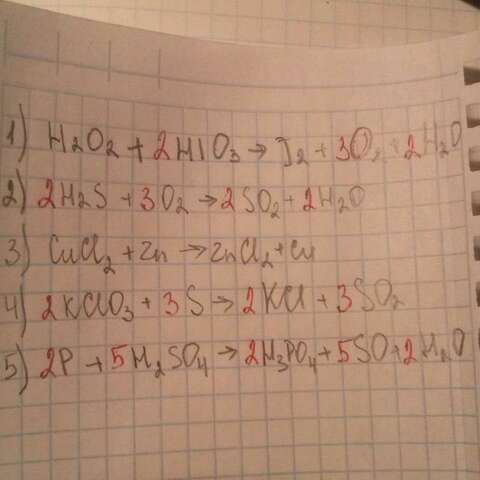 1) H2O2 + 2HIO3 → I2 + 3O2 + 2H2O
2) 2H2S + 3O2 → 2SO2 + 2H2O
3) CuCl2 + Zn → ZnCl2 + Cu
4) 2KClO3 + 3S → 2KCl + 3SO2
5) 2P + 5H2SO4 → 2H3PO4 + 5SO + 2H2O